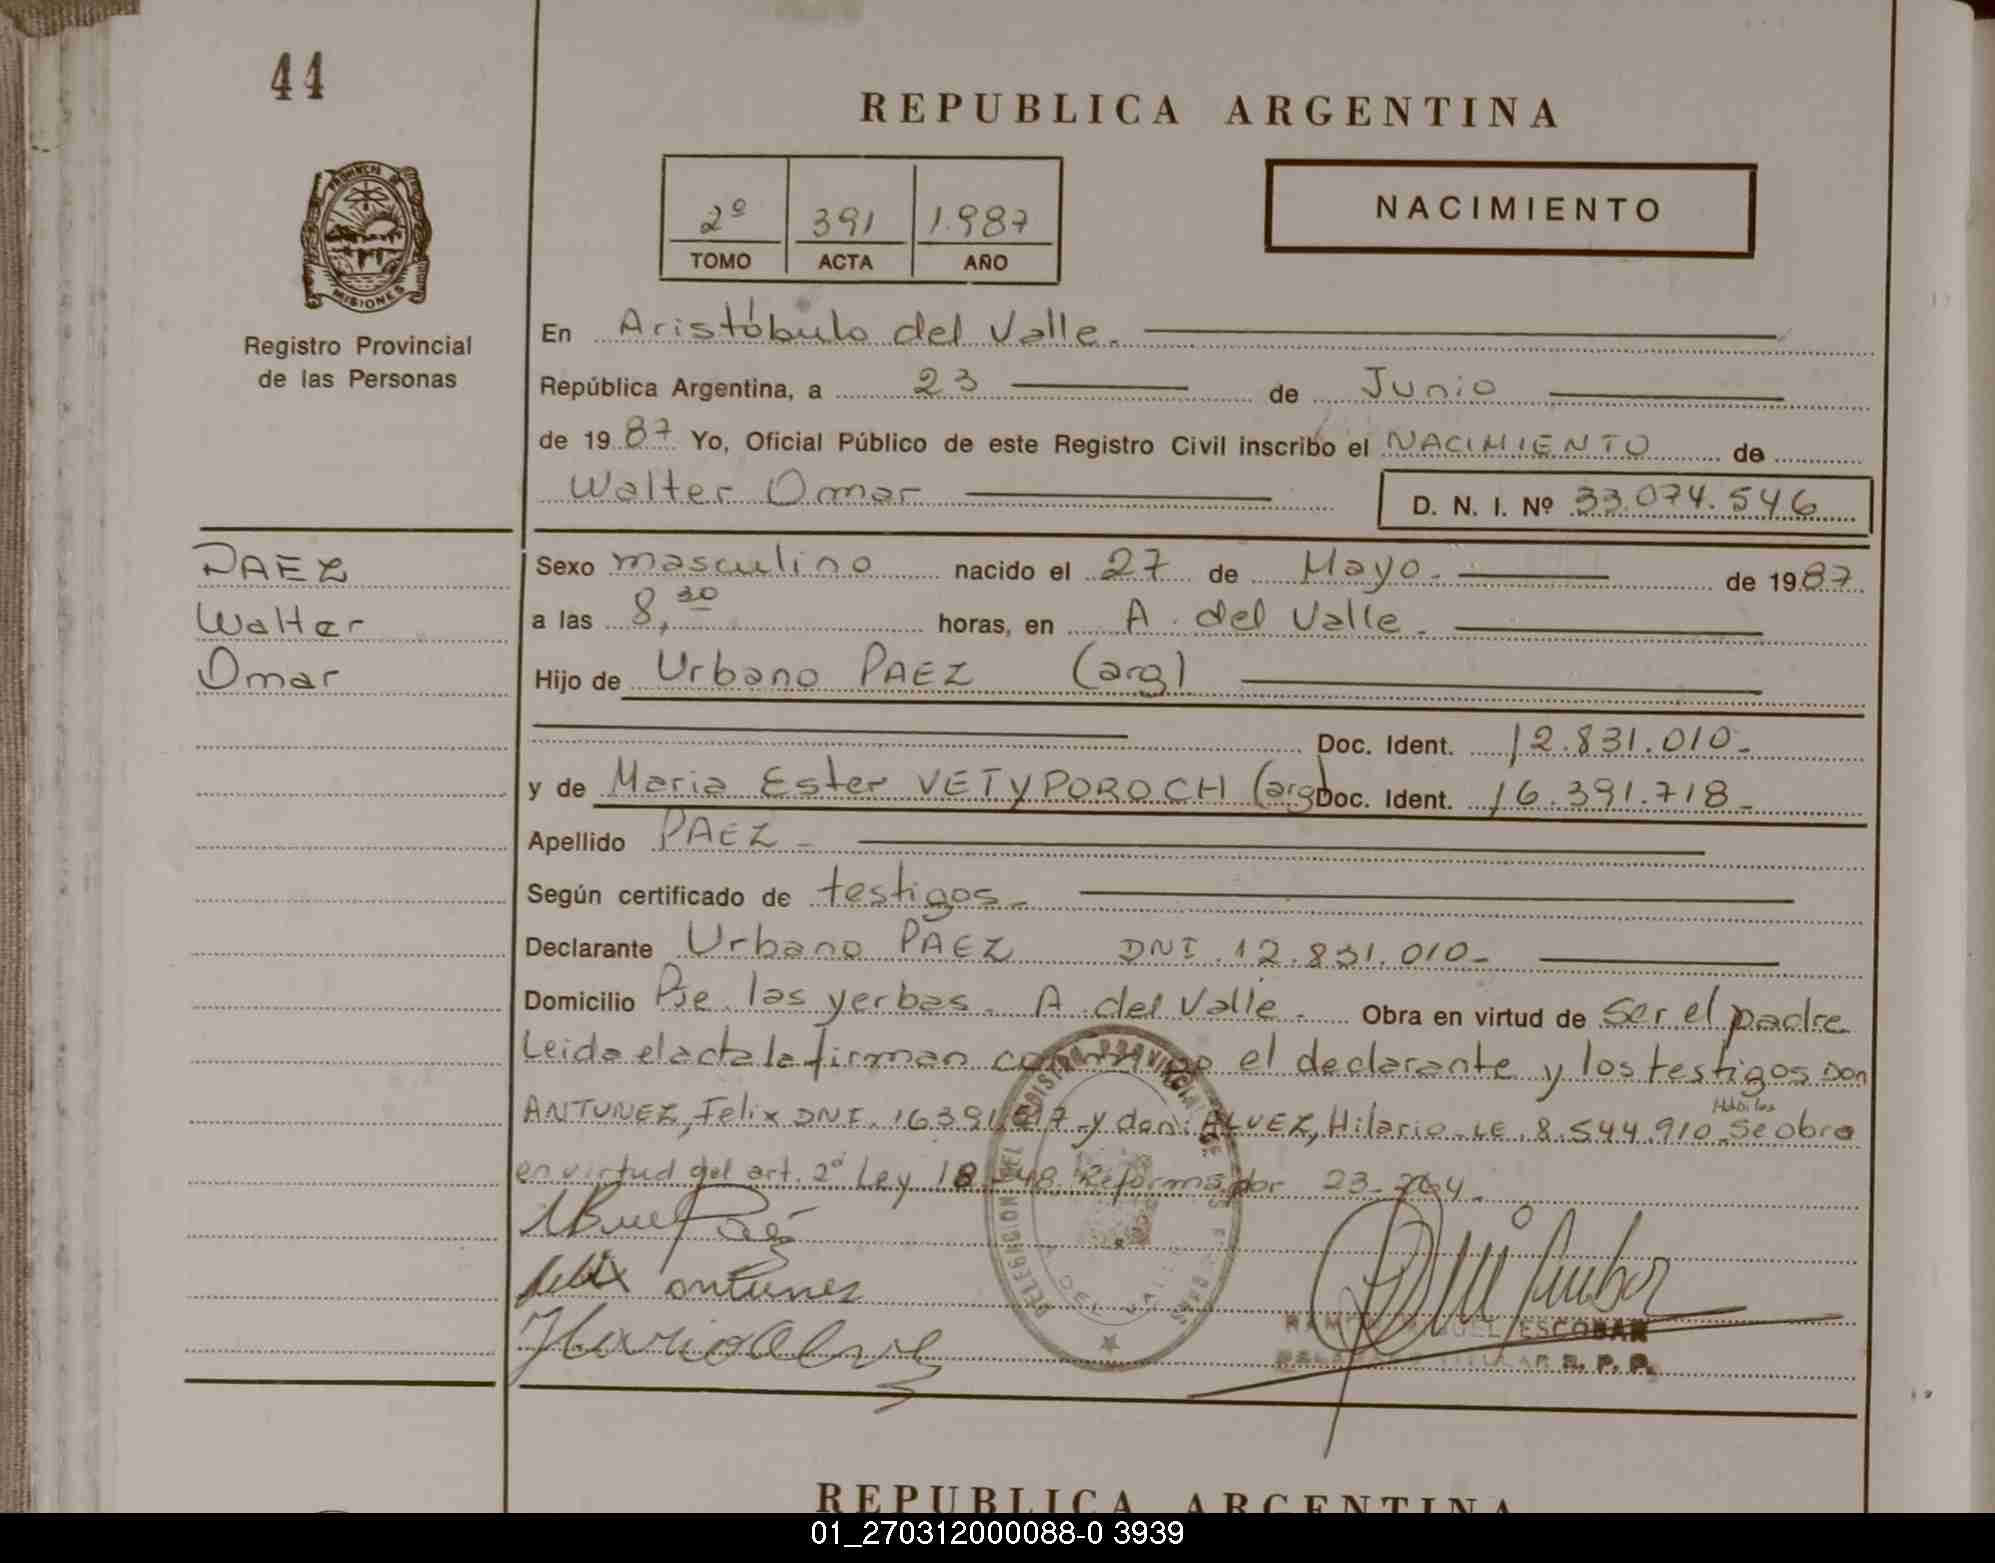 44
REPUBLICA ARGENTINA
2º 391 1.987
TOMO ACTA AÑO
NACIMIENTO
PROVINCIA DE
MISIONES
Registro Provincial
de las Personas
En Aristóbulo del Valle.
República Argentina, a 23 de Junio
de 1987 Yo, Oficial Público de este Registro Civil inscribo el NACIMIENTO de
Walter Omar D. N. I. Nº 33.074.546
PAEZ
Walter
Omar
Sexo masculino nacido el 27 de Mayo. de 1987
a las 8,30 horas, en A. del Valle.
Hijo de Urbano PAEZ (arg)
Doc. Ident. 12.831.010-
y de Maria Ester VETYPOROCH (arg) Doc. Ident. 16.391.718-
Apellido PAEZ-
Según certificado de testigos-
Declarante Urbano PAEZ DNI. 12.831.010-
Domicilio Pje. las yerbas. A. del Valle. Obra en virtud de ser el padre
Leida el acta la firman conmigo el declarante y los testigos Don
ANTUNEZ, Felix DNI. 16391.517 y don: ALVEZ, Hilario LE. 8.544.910. Se obra
en virtud del art. 2º Ley 18. 48. Reforma por 23.264.
Paéz
felix antunes
Hilario Alvez
DELEGACION DEL REGISTRO PROVINCIAL DE LAS PERSONAS
DEL VALLE
RAMON MIGUEL ESCOBAR
TITULAR R. P. P.
REPUBLICA ARGENTINA
01_270312000088-0 3939